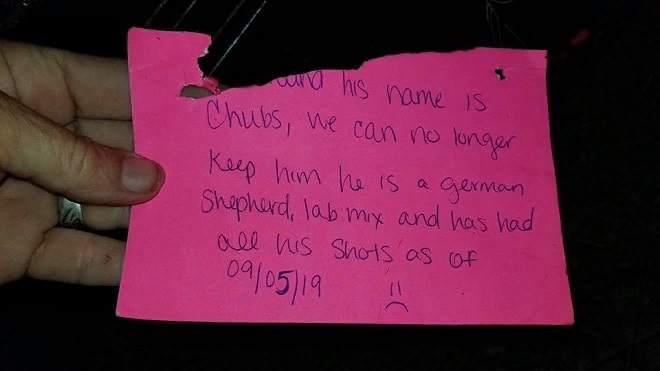 and his name is
Chubs, we can no longer
Keep him he is a german
Shepherd, lab mix and has had
all his shots as of
09/05/19